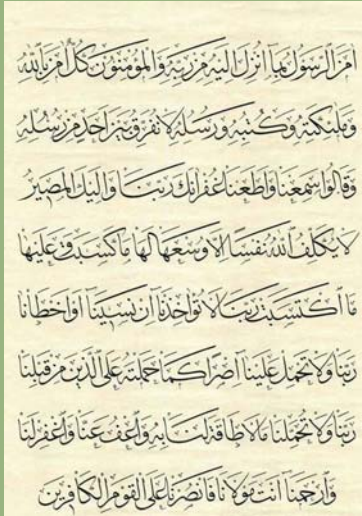 اٰمَنَ الرَّسُولُ بِمَا اُنْزِلَ اِلَيْهِ مِنْ رَبِّهِ وَالْمُؤْمِنُونَ كُلٌّ اٰمَنَ بِاللّٰهِ
وَمَلٰئِكَتِهِ وَكُتُبِهِ وَرُسُلِهِ لَا نُفَرِّقُ بَيْنَ اَحَدٍ مِنْ رُسُلِهِ
وَقَالُوا سَمِعْنَا وَاَطَعْنَا غُفْرَانَكَ رَبَّنَا وَاِلَيْكَ الْمَصِيرُ
لَا يُكَلِّفُ اللّٰهُ نَفْسًا اِلَّا وُسْعَهَا لَهَا مَا كَسَبَتْ وَعَلَيْهَا
مَا اكْتَسَبَتْ رَبَّنَا لَا تُؤَاخِذْنَا اِنْ نَسِينَا اَوْ اَخْطَاْنَا
رَبَّنَا وَلَا تَحْمِلْ عَلَيْنَا اِصْرًا كَمَا حَمَلْتَهُ عَلَى الَّذِينَ مِنْ قَبْلِنَا
رَبَّنَا وَلَا تُحَمِّلْنَا مَا لَا طَاقَةَ لَنَا بِهِ وَاعْفُ عَنَّا وَاغْفِرْ لَنَا
وَارْحَمْنَا اَنْتَ مَوْلَانَا فَانْصُرْنَا عَلَى الْقَوْمِ الْكَافِرِينَ